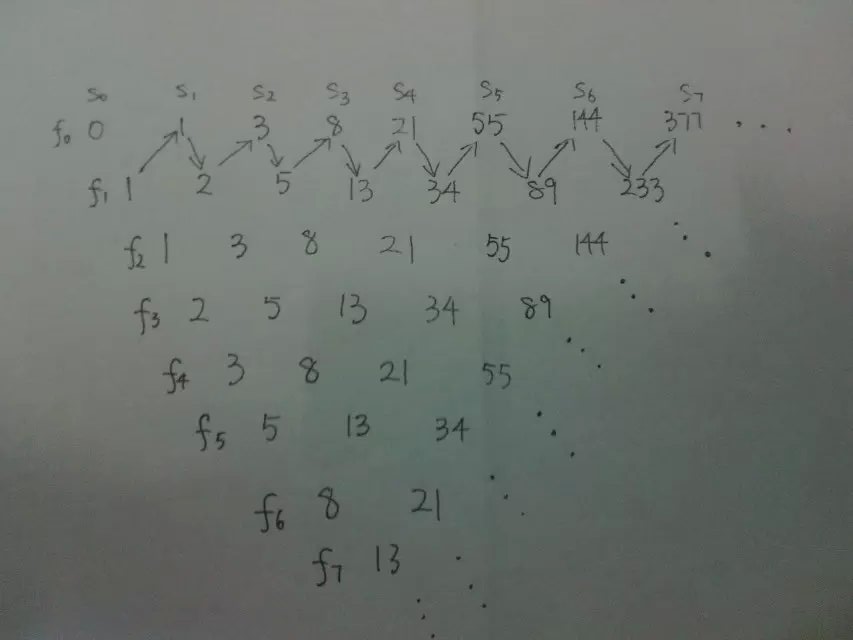 S₀ S₁ S₂ S₃ S₄ S₅ S₆ S₇
f₀ 0 1 3 8 21 55 144 377 . . .
f₁ 1 2 5 13 34 89 233
f₂ 1 3 8 21 55 144
f₃ 2 5 13 34 89
f₄ 3 8 21 55
f₅ 5 13 34
f₆ 8 21
f₇ 13